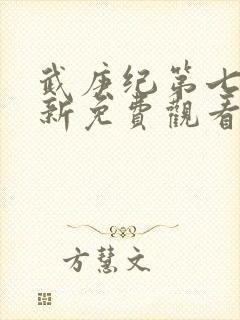 武庚纪第七
新免費觀看
方慧文